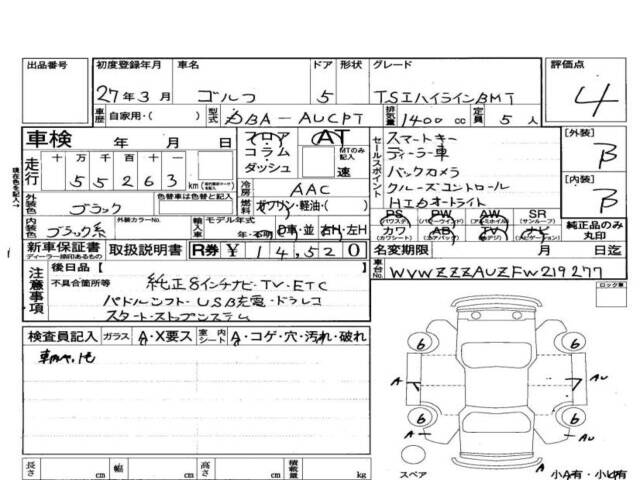 出品番号
初度登録年月 27年3月
車名 ゴルフ
ドア 5
形状
グレード TSIハイラインBMT
評価点 4
車歴 自家用・( )
型式 DBA-AUCPT
排気量 1400 cc
定員 5 人
車検 年 月 日
フロア・コラム・ダッシュ
AT
MTのみ記入 速
セールスポイント
スマートキー
ディーラー車
バックカメラ
クルーズコントロール
HIDオートライト
[外装] B
[内装] B
現在色を記入→
走行 十万 万 千 百 十
5 5 2 6 3 km
冷房 AAC
燃料 ガソリン・軽油・( )
外装色 ブラック
色替車は元色( )
内装色 ブラック系
外装カラーNo.
輸入車 モデル年式 年・不明 D車・並 右H・左H
PS (パワステ) PW (パワーウインド) AW (アルミホイル) SR (サンルーフ)
カワ (カワシート) AB (エアバッグ) TV (テレビ) ナビ (ナビゲーション)
純正品のみ丸印
新車保証書 ディーラー捺印あるもの
取扱説明書
R券 ¥ 14,520
名変期限 月 日迄
車台No. WVWZZZAUZFW219277
注意事項
後日品 [ ]
不具合箇所等 純正8インチナビ・TV・ETC
パドルシフト・USB充電・ドラレコ
スタート・ストップシステム
ロック車
検査員記入 ガラス A・X要ス 室内シート A・コゲ・穴・汚れ・破れ
6 6
A A AU
6 6
A AU
スペア
小A有・小U有
長さ cm 幅 cm 高さ cm 積載量 kg